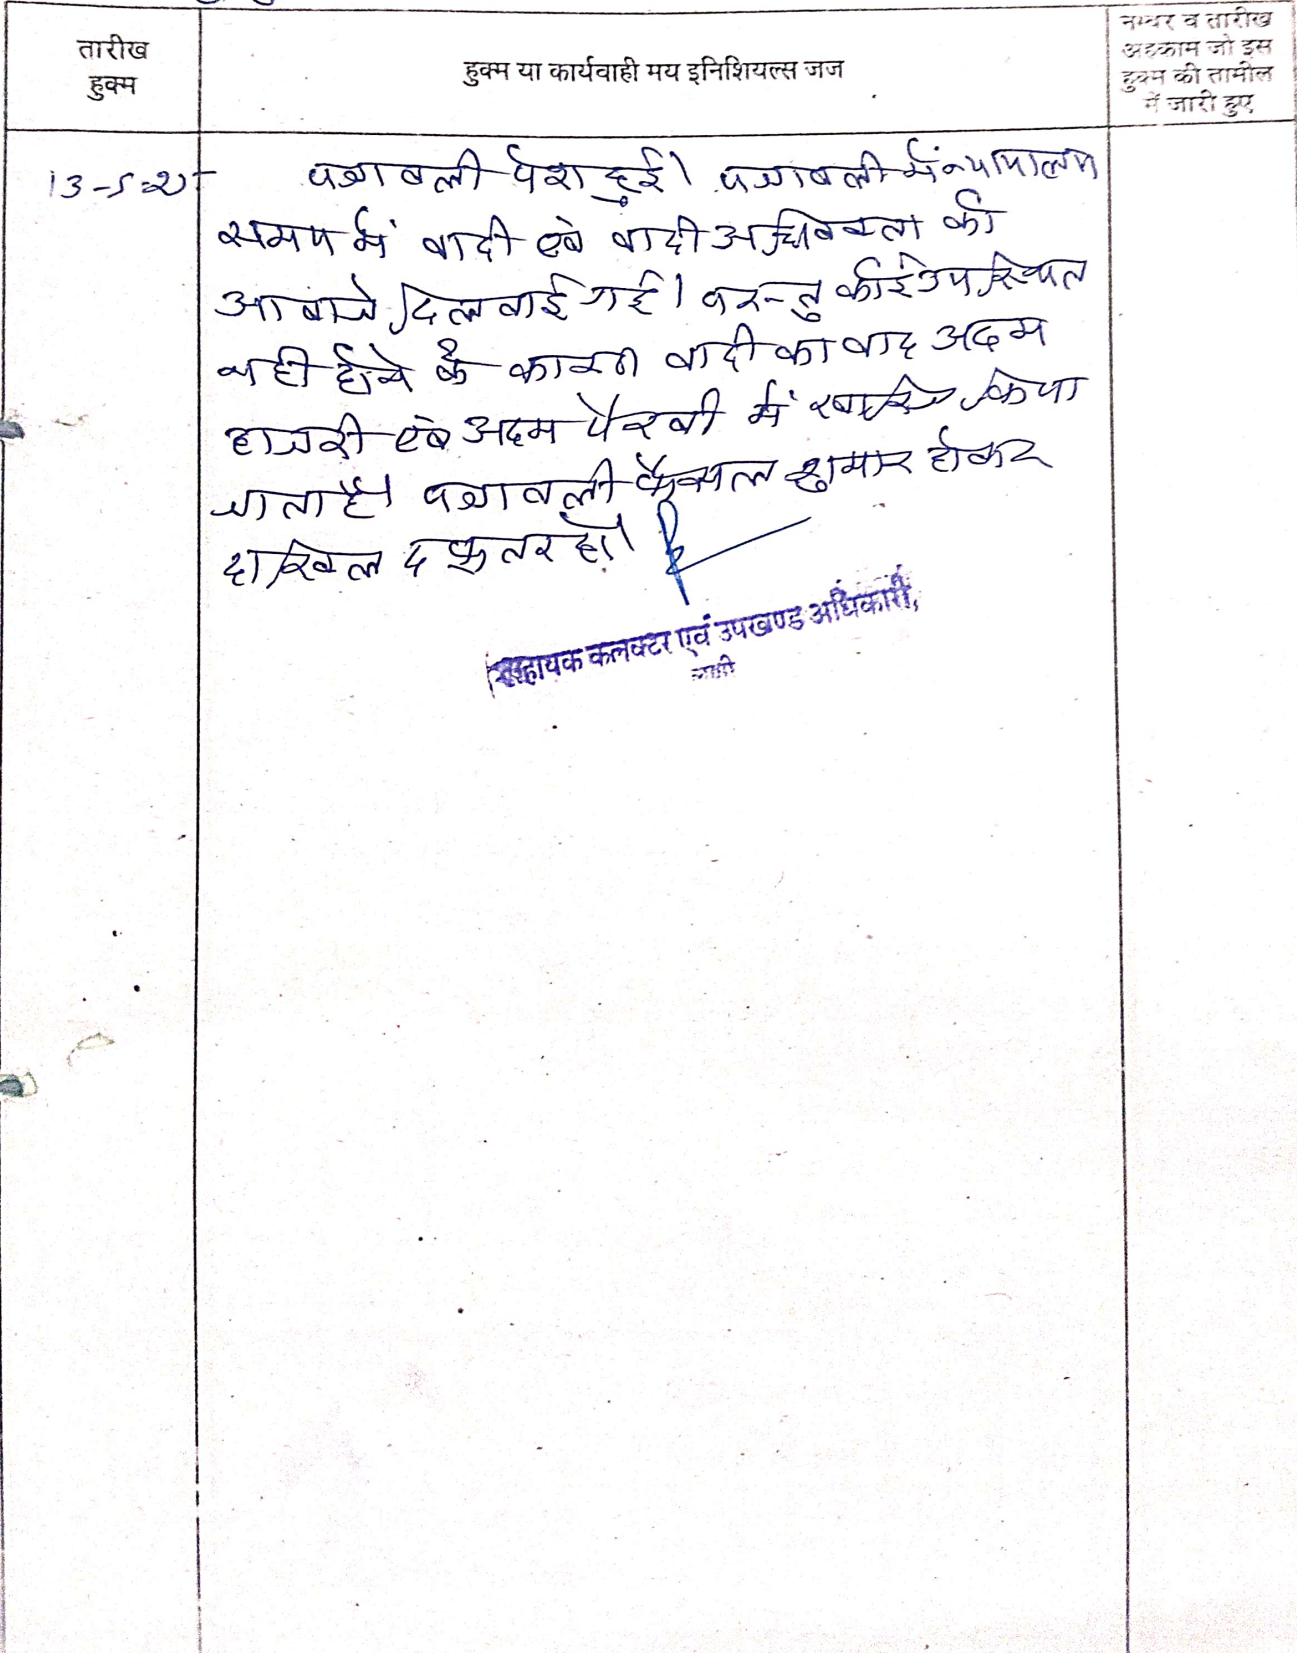 तारीख
हुक्म
हुक्म या कार्यवाही मय इनिशियल्स जज
नम्बर व तारीख
अहकाम जो इस
हुक्म की तामील
में जारी हुए
13-5-25
पत्रावली पेश हुई। पत्रावली में न्यायालय
समय में वादी एवं वादी अधिवक्ता की
आवाजे दिलवाई गई। परन्तु कोई उपस्थित
नही होने के कारण वादी का वाद अदम
हाजरी एवं अदम पैरवी में खारिज किया
जाता है। पत्रावली फैसल शुमार होकर
दाखिल दफ्तर हो।
सहायक कलक्टर एवं उपखण्ड अधिकारी,